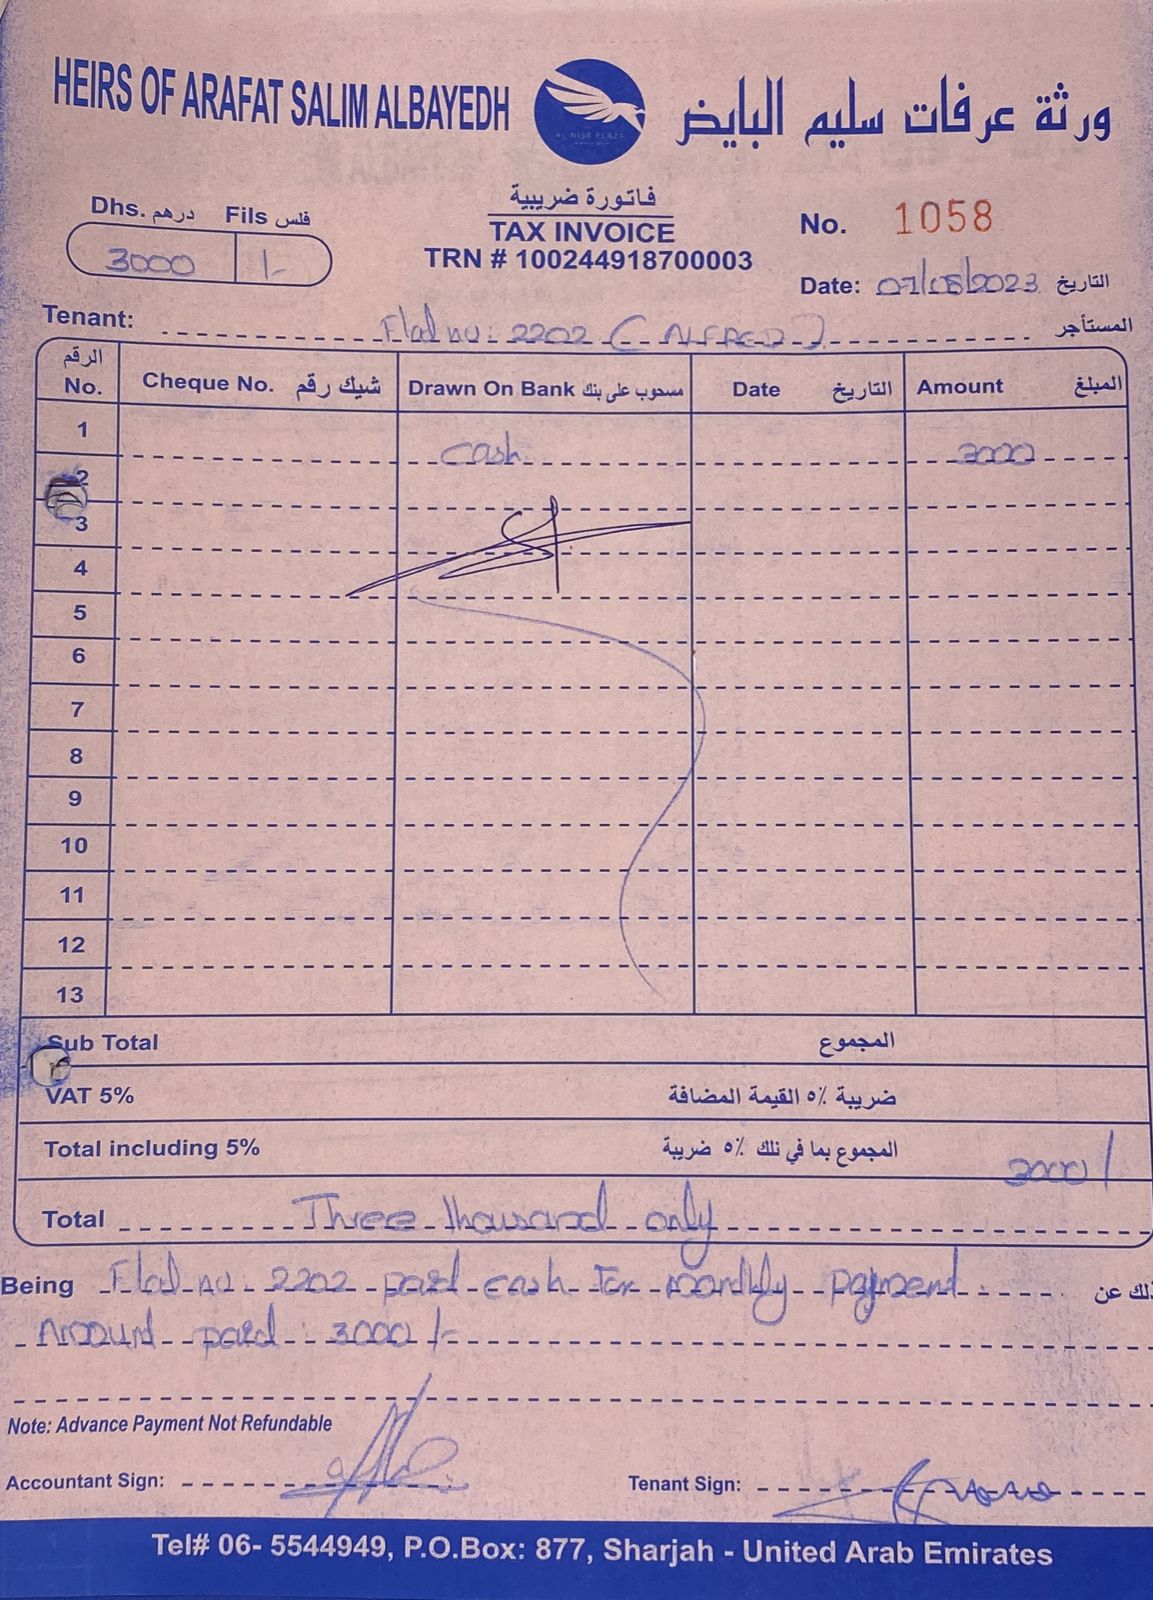 HEIRS OF ARAFAT SALIM ALBAYEDH
ورثة عرفات سليم البايض
AL NISR PLAZA
فاتورة ضريبية
TAX INVOICE
TRN # 100244918700003
Dhs. درهم Fils فلس
3000 /-
No. 1058
Date: 07/05/2023 التاريخ
Tenant: Flat no: 2202 ( ALFRED ) المستأجر
الرقم No. Cheque No. شيك رقم Drawn On Bank مسحوب على بنك Date التاريخ Amount المبلغ
1 cash 3000
2
3
4
5
6
7
8
9
10
11
12
13
Sub Total المجموع
VAT 5% ضريبة ٥٪ القيمة المضافة
Total including 5% المجموع بما في نلك ٥٪ ضريبة 3000/
Total Three thousand only
Being Flat no 2202 paid cash for monthly payment. ذلك عن
Amount paid : 3000/-
Note: Advance Payment Not Refundable
Accountant Sign: Tenant Sign:
Tel# 06- 5544949, P.O.Box: 877, Sharjah - United Arab Emirates